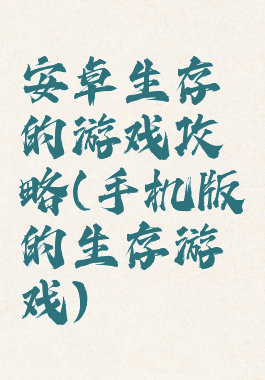 安卓生存
的游戏攻
略(手机版
的生存游
戏)